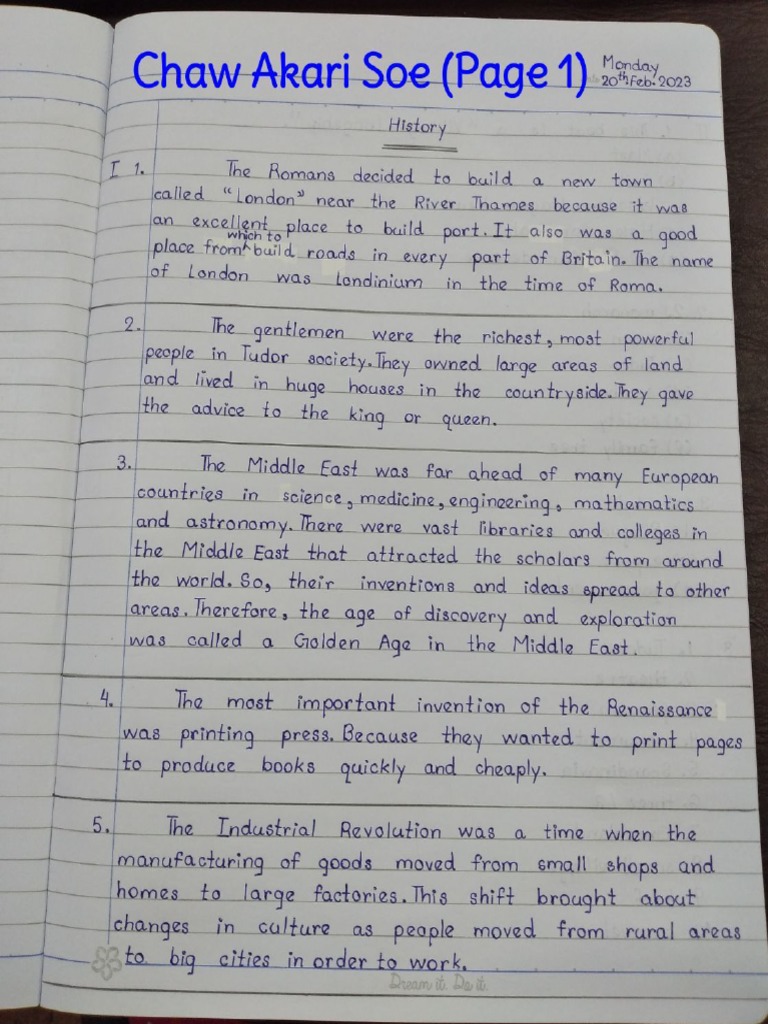 Chaw Akari Soe (Page 1)
Monday
20th Feb. 2023
History
I 1. The Romans decided to build a new town
called "London" near the River Thames because it was
an excellent place to build port. It also was a good
which to
place from build roads in every part of Britain. The name
of London was Londinium in the time of Roma.
2. The gentlemen were the richest, most powerful
people in Tudor society. They owned large areas of land
and lived in huge houses in the countryside. They gave
the advice to the king or queen.
3. The Middle East was far ahead of many European
countries in science, medicine, engineering, mathematics
and astronomy. There were vast libraries and colleges in
the Middle East that attracted the scholars from around
the world. So, their inventions and ideas spread to other
areas. Therefore, the age of discovery and exploration
was called a Golden Age in the Middle East.
4. The most important invention of the Renaissance
was printing press. Because they wanted to print pages
to produce books quickly and cheaply.
5. The Industrial Revolution was a time when the
manufacturing of goods moved from small shops and
homes to large factories. This shift brought about
changes in culture as people moved from rural areas
to big cities in order to work.
Dream it. Do it.